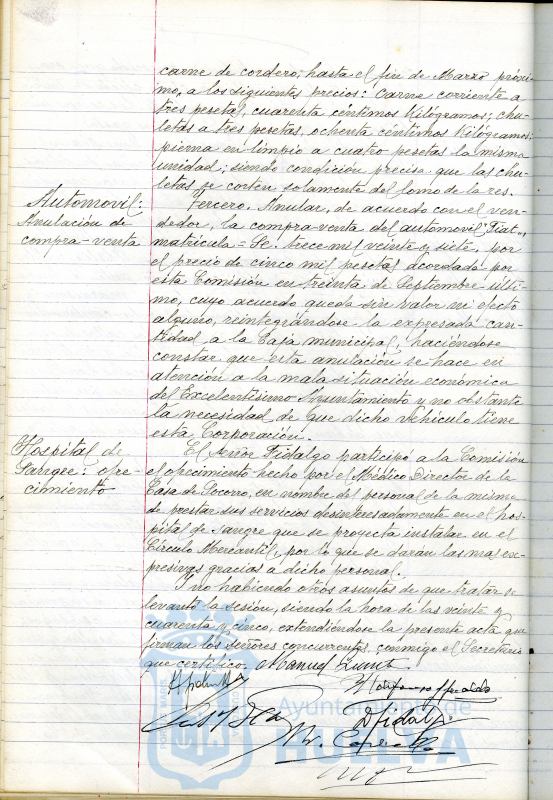 carne de cordero; hasta el fin de Marzo próxi-
mo, a los siguientes precios: Carne corriente a
tres pesetas, cuarenta céntimos Kilógramos; chu-
letas a tres pesetas, ochenta céntimos Kilógramos;
pierna en limpio a cuatro pesetas la misma
unidad; siendo condición precisa que las chu-
letas se corten solamente del lomo de la res.
Automovil:
Anulación de
compra-venta
Tercero. Anular, de acuerdo con el ven-
dedor, la compra-venta del automóvil "Fiat",
matrícula=Se. trece mil veinte y siete, por
el precio de cinco mil pesetas acordada por
esta Comisión en treinta de Septiembre últi-
mo, cuyo acuerdo queda sin valor ni efecto
alguno, reintegrándose la expresada can-
tidad a la Caja municipal; haciéndose
constar que esta anulación se hace en
atención a la mala situación económica
del Excelentísimo Ayuntamiento y no obstante
la necesidad de que dicho vehículo tiene
esta Corporación.
Hospital de
Sangre: ofre-
cimiento
El señor Fidalgo participó a la Comisión
el ofrecimiento hecho por el Médico Director de la
Casa de Socorro, en nombre del personal de la misma
de prestar sus servicios desinteresadamente en el hos-
pital de sangre que se proyecta instalar en el
Círculo Mercantil, por lo que se darán las mas ex-
presivas gracias a dicho personal.
Y no habiendo otros asuntos de que tratar se
levantó la sesión, siendo la hora de las veinte y
cuarenta y cinco, extendiéndose la presente acta que
firman los señores concurrentes, conmigo el Secretario
que certifico.
Manuel
D Fidalgo
Ayuntamiento de
HUELVA